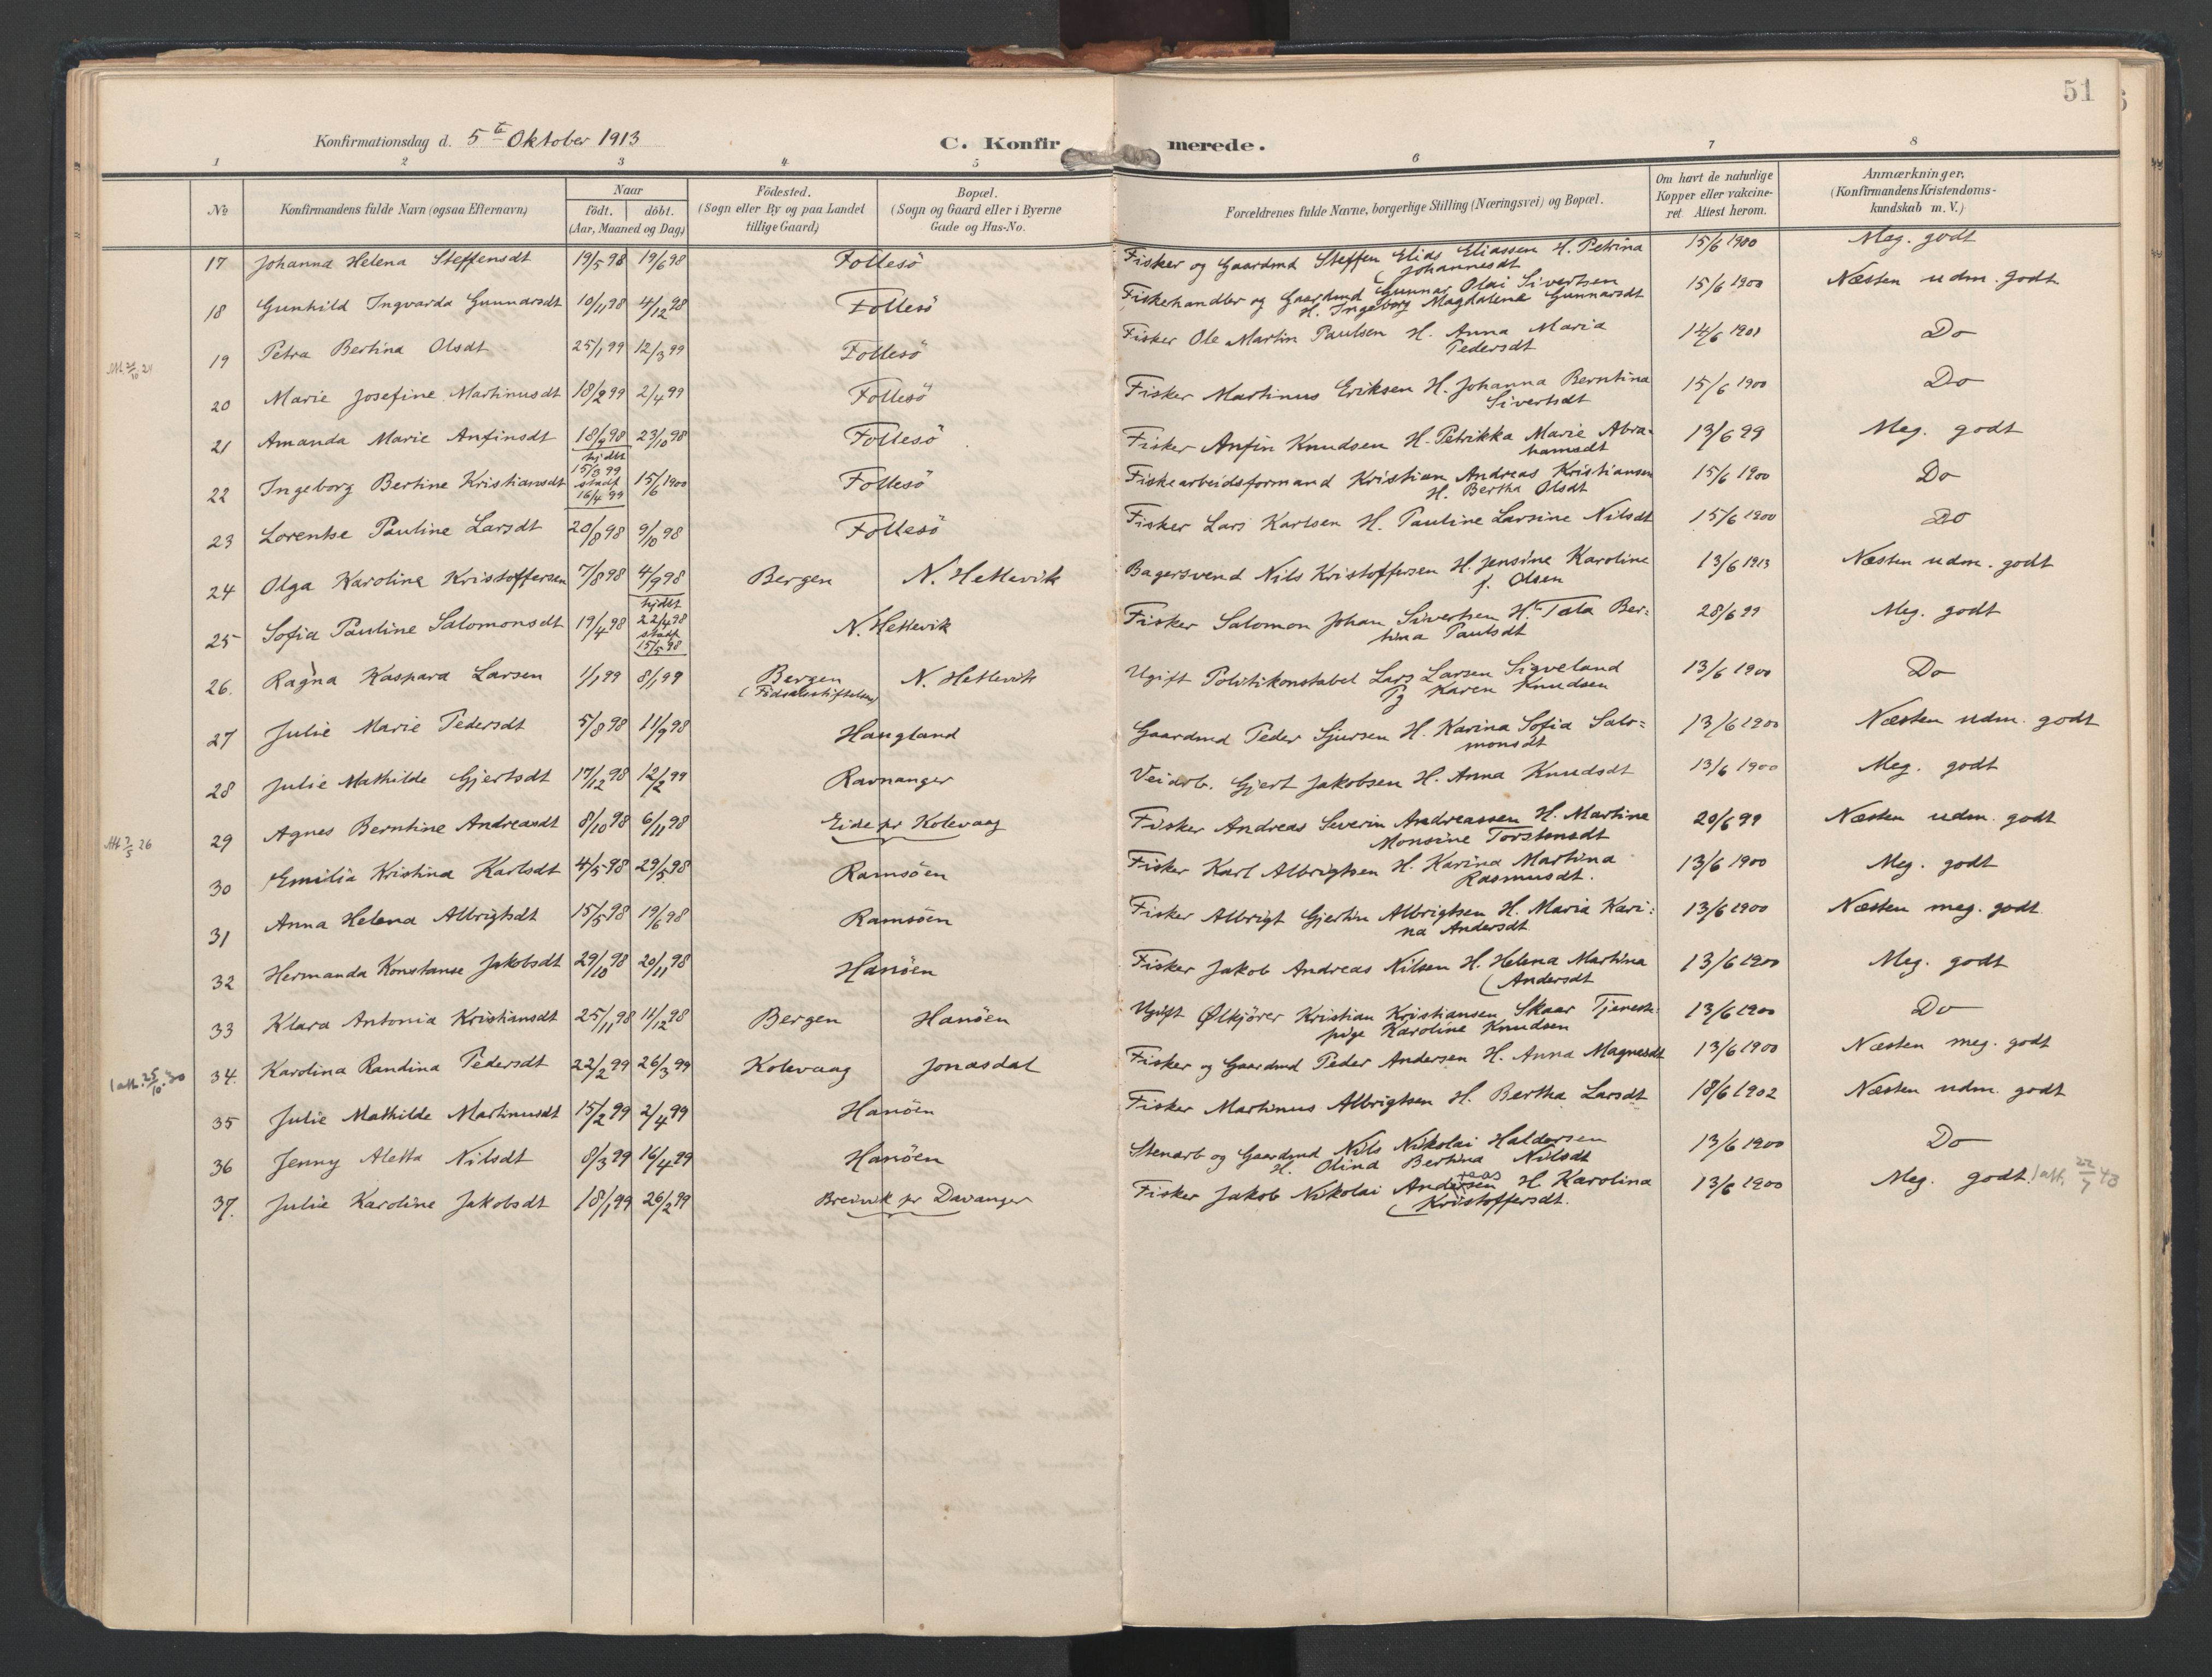 51
Konfirmationsdag d. 5te Oktober 1913
C. Konfirmerede.
1 2 3 4 5 6 7 8
No
Konfirmandens fulde Navn (ogsaa Efternavn)
Naar
födt. döbt.
(Aar, Maaned og Dag)
Födested.
(Sogn eller By og paa Landet
tillige Gaard)
Bopæl.
(Sogn og Gaard eller i Byerne
Gade og Hus-No.
Forældrenes fulde Navne, borgerlige Stilling (Næringsvei) og Bopæl.
Om havt de naturlige
Kopper eller vakcine-
ret. Attest herom.
Anmærkninger.
(Konfirmandens Kristendoms-
kundskab m. V.)
17 Johanna Helena Steffensdt 19/5 98 19/6 98 Follesö Fisker og Gaardmd Steffen Elias Eliassen H. Petrina 15/6 1900 Meg. godt
Johannesdt
18 Gunhild Ingvarda Gunnarsdt 10/11 98 4/12 98 Follesö Fiskehandler og Gaardmd Gunnar Olai Sivertsen 15/6 1900 Næsten udm. godt
H. Ingeborg Magdalena Gunnarsdt
19 Petra Bertina Olsdt 25/1 99 12/3 99 Follesö Fisker Ole Martin Paulsen H. Anna Maria 14/6 1901 Do
Pedersdt
20 Marie Josefine Martinusdt 18/2 99 2/4 99 Follesö Fisker Martinus Eriksen H. Johanna Berntina 15/6 1900 Do
Sivertsdt
21 Amanda Marie Anfinsdt 18/9 98 23/10 98 Follesö Fisker Anfin Knudsen H. Petrikka Marie Abra-
hamsdt 13/6 99 Meg. godt
22 Ingeborg Bertine Kristiansdt hjdbt 15/3 99 stadf 16/4 99 15/6 1900 Follesö Fiskearbeidsformand Kristian Andreas Kristiansen 15/6 1900 Do
H. Bertha Olsdt
23 Lorentse Pauline Larsdt 20/8 98 9/10 98 Follesö Fisker Lars Karlsen H. Pauline Larsine Nilsdt 15/6 1900 Do
24 Olga Karoline Kristoffersen 7/8 98 4/9 98 Bergen N. Hetlevik Bagersvend Nils Kristoffersen H. Jensine Karoline 13/6 1913 Næsten udm. godt
f. Olsen
25 Sofia Pauline Salomonsdt 19/4 98 hjdbt 22/4 98 stadf 15/5 98 N. Hetlevik Fisker Salomon Johan Sivertsen H. Tala Ber-
tina Paulsdt 28/6 99 Meg. godt
26. Ragna Kaspara Larsen 1/1 99 8/1 99 Bergen N. Hetlevik Ugift Politikonstabel Lars Larsen Sigveland 13/6 1900 Do
(Födselsstiftelsen) Pg Karen Knudsen
27 Julie Marie Pedersdt 5/8 98 11/9 98 Haugland Gaardmd Peder Sjursen H. Karina Sofia Salo-
monsdt 13/6 1900 Næsten udm. godt
28 Julie Mathilde Gjertsdt 17/12 98 12/2 99 Ravnanger Veiarb. Gjert Jakobsen H. Anna Knudsdt 13/6 1900 Meg. godt
29 Agnes Berntine Andreasdt 8/10 98 6/11 98 Eide pr Kolevaag Fisker Andreas Severin Andreassen H. Martine 20/6 99 Næsten udm. godt
Monsine Torstensdt
30 Emilia Kristina Karlsdt 4/5 98 29/5 98 Ramsöen Fisker Karl Albrigtsen H. Karina Martina 13/6 1900 Meg. godt
Rasmusdt.
31 Anna Helena Albrigtsdt 15/5 98 19/6 98 Ramsöen Fisker Albrigt Gjertin Albrigtsen H. Maria Kari-
na Andersdt 13/6 1900 Næsten meg. godt
32 Hermanda Konstanse Jakobsdt 29/10 98 20/11 98 Hanöen Fisker Jakob Andreas Nilsen H. Helena Martina 13/6 1900 Meg. godt
Andersdt
33 Klara Antonia Kristiansdt 25/11 98 11/12 98 Bergen Hanöen Ugift Ölkjörer Kristian Kristiansen Skaar Tjeneste-
pige Karoline Knudsen 13/6 1900 Do
1 att. 25/10.30 34. Karolina Randina Pedersdt 22/2 99 26/3 99 Kolevaag Jonasdal Fisker og Gaardmd Peder Andersen H. Anna Magnesdt 13/6 1900 Næsten meg. godt
35 Julie Mathilde Martinusdt 15/2 99 2/4 99 Hanöen Fisker Martinus Albrigtsen H. Bertha Larsdt 18/6 1902 Næsten udm. godt
36 Jenny Aletta Nilsdt 8/3 99 16/4 99 Hanöen Stenarb og Gaardmd Nils Nikolai Haldorsen 13/6 1900 Do
H. Olina Bertina Nilsdt
37. Julie Karoline Jakobsdt 18/1 99 26/2 99 Breivik pr Davanger Fisker Jakob Nikolai Andersen H Karolina 13/6 1900 Meg. godt. 1 att. 22/7 43
Kristoffersdt.